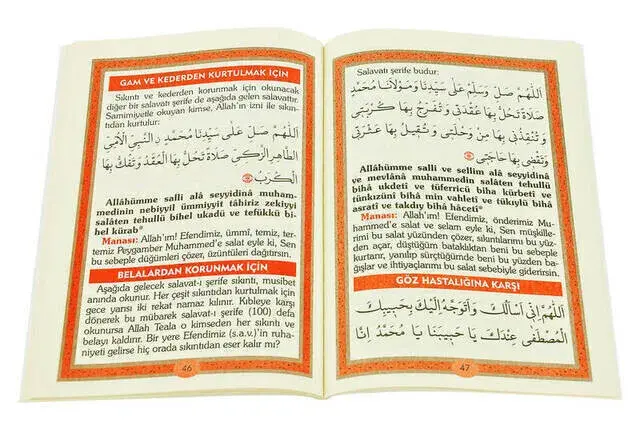 GAM VE KEDERDEN KURTULMAK İÇİN
Sıkıntı ve kederden korunmak için okunacak
diğer bir salavatı şerife de aşağıda gelen salavattır.
Samimiyetle okuyan kimse, Allah'ın izni ile sıkın-
tıdan kurtulur:
اَللّٰهُمَّ صَلِّ عَلٰى سَيِّدِنَا مُحَمَّدٍ نِ النَّبِيِّ الْاُمِّيِّ
الطَّاهِرِ الزَّكِيِّ صَلَاةً تَحُلُّ بِهَا الْعُقَدَ وَتَفُكُّ بِهَا
الْكُرَبَ
Allâhümme salli alâ seyyidinâ muham-
medinin nebiyyil ümmiyyit tâhiriz zekiyyi
salâten tehullü bihel ukadü ve tefükkü bi-
hel kürab*
Manası: Allah'ım! Efendimiz, ümmî, temiz, ter-
temiz Peygamber Muhammed'e salat eyle ki, Sen
bu sebeple düğümleri çözer, üzüntüleri dağıtırsın.
BELALARDAN KORUNMAK İÇİN
Aşağıda gelecek salavat-ı şerife sıkıntı, musibet
anında okunur. Her çeşit sıkıntıdan kurtulmak için
gece yarısı iki rekat namaz kılınır. Kıbleye karşı
dönerek bu mübarek salavat-ı şerife (100) defa
okunursa Allah Teala o kimseden her sıkıntı ve
belayı kaldırır. Bir yere Efendimiz (s.a.v.)'in ruha-
niyeti gelirse hiç orada sıkıntıdan eser kalır mı?
46
Salavatı şerife budur:
اَللّٰهُمَّ صَلِّ وَسَلِّمْ عَلٰى سَيِّدِنَا وَمَوْلَانَا مُحَمَّدٍ
صَلَاةً تَحُلُّ بِهَا عُقْدَتِي وَتُفَرِّجُ بِهَا كُرْبَتِي
وَتُنْقِذُنِي بِهَا مِنْ وَحْلَتِي وَتُقِيلُ بِهَا عَثْرَتِي
وَتَقْضِي بِهَا حَاجَتِي
Allâhümme salli ve sellim alâ seyyidinâ
ve mevlânâ muhammedin salâten tehullü
bihâ ukdetî ve tüferricü bihâ kürbetî ve
tünkızünî bihâ min vahletî ve tükıylü bihâ
asratî ve takdıy bihâ hâcetî*
Manası: Allah'ım! Efendimiz, önderimiz Mu-
hammed'e salat ve selam eyle ki, Sen müşkille-
rimi bu salat yüzünden çözer, sıkıntılarımı bu yüz-
den açar, düştüğüm bataklıktan beni bu sebeple
kurtarır, yanılıp sürçtüğümde beni bu yüzden ba-
ğışlar ve ihtiyaçlarımı bu salat sebebiyle giderirsin.
GÖZ HASTALIĞINA KARŞI
اَللّٰهُمَّ اِنِّي اَسْاَلُكَ وَاَتَوَجَّهُ اِلَيْكَ بِحَبِيبِكَ
الْمُصْطَفٰى عِنْدَكَ يَا حَبِيبَنَا يَا مُحَمَّدُ اِنَّا
47